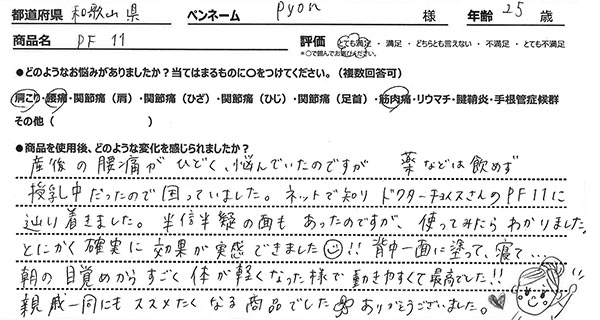 都道府県 和歌山県 ペンネーム pyon 様 年齢 25 歳
商品名 PF 11 評価 とても満足 ・ 満足 ・ どちらとも言えない ・ 不満足 ・ とても不満足
*○で囲んでお選びください。
●どのようなお悩みがありましたか？当てはまるものに○をつけてください。（複数回答可）
肩こり・腰痛・関節痛（肩）・関節痛（ひざ）・関節痛（ひじ）・関節痛（足首）・筋肉痛・リウマチ・腱鞘炎・手根管症候群
その他（ ）
●商品を使用後、どのような変化を感じられましたか？
産後の腰痛がひどく、悩んでいたのですが 薬などは飲めず
授乳中だったので困っていました。ネットで知り ドクターチョイスさんのPF11に
辿り着きました。半信半疑の面もあったのですが、使ってみたらわかりました。
とにかく確実に効果が実感できました!! 背中一面に塗って、寝て…
朝の目覚めからすごく体が軽くなった様で動きやすくて最高でした!!
親戚一同にもススメたくなる商品でした ありがとうございました。